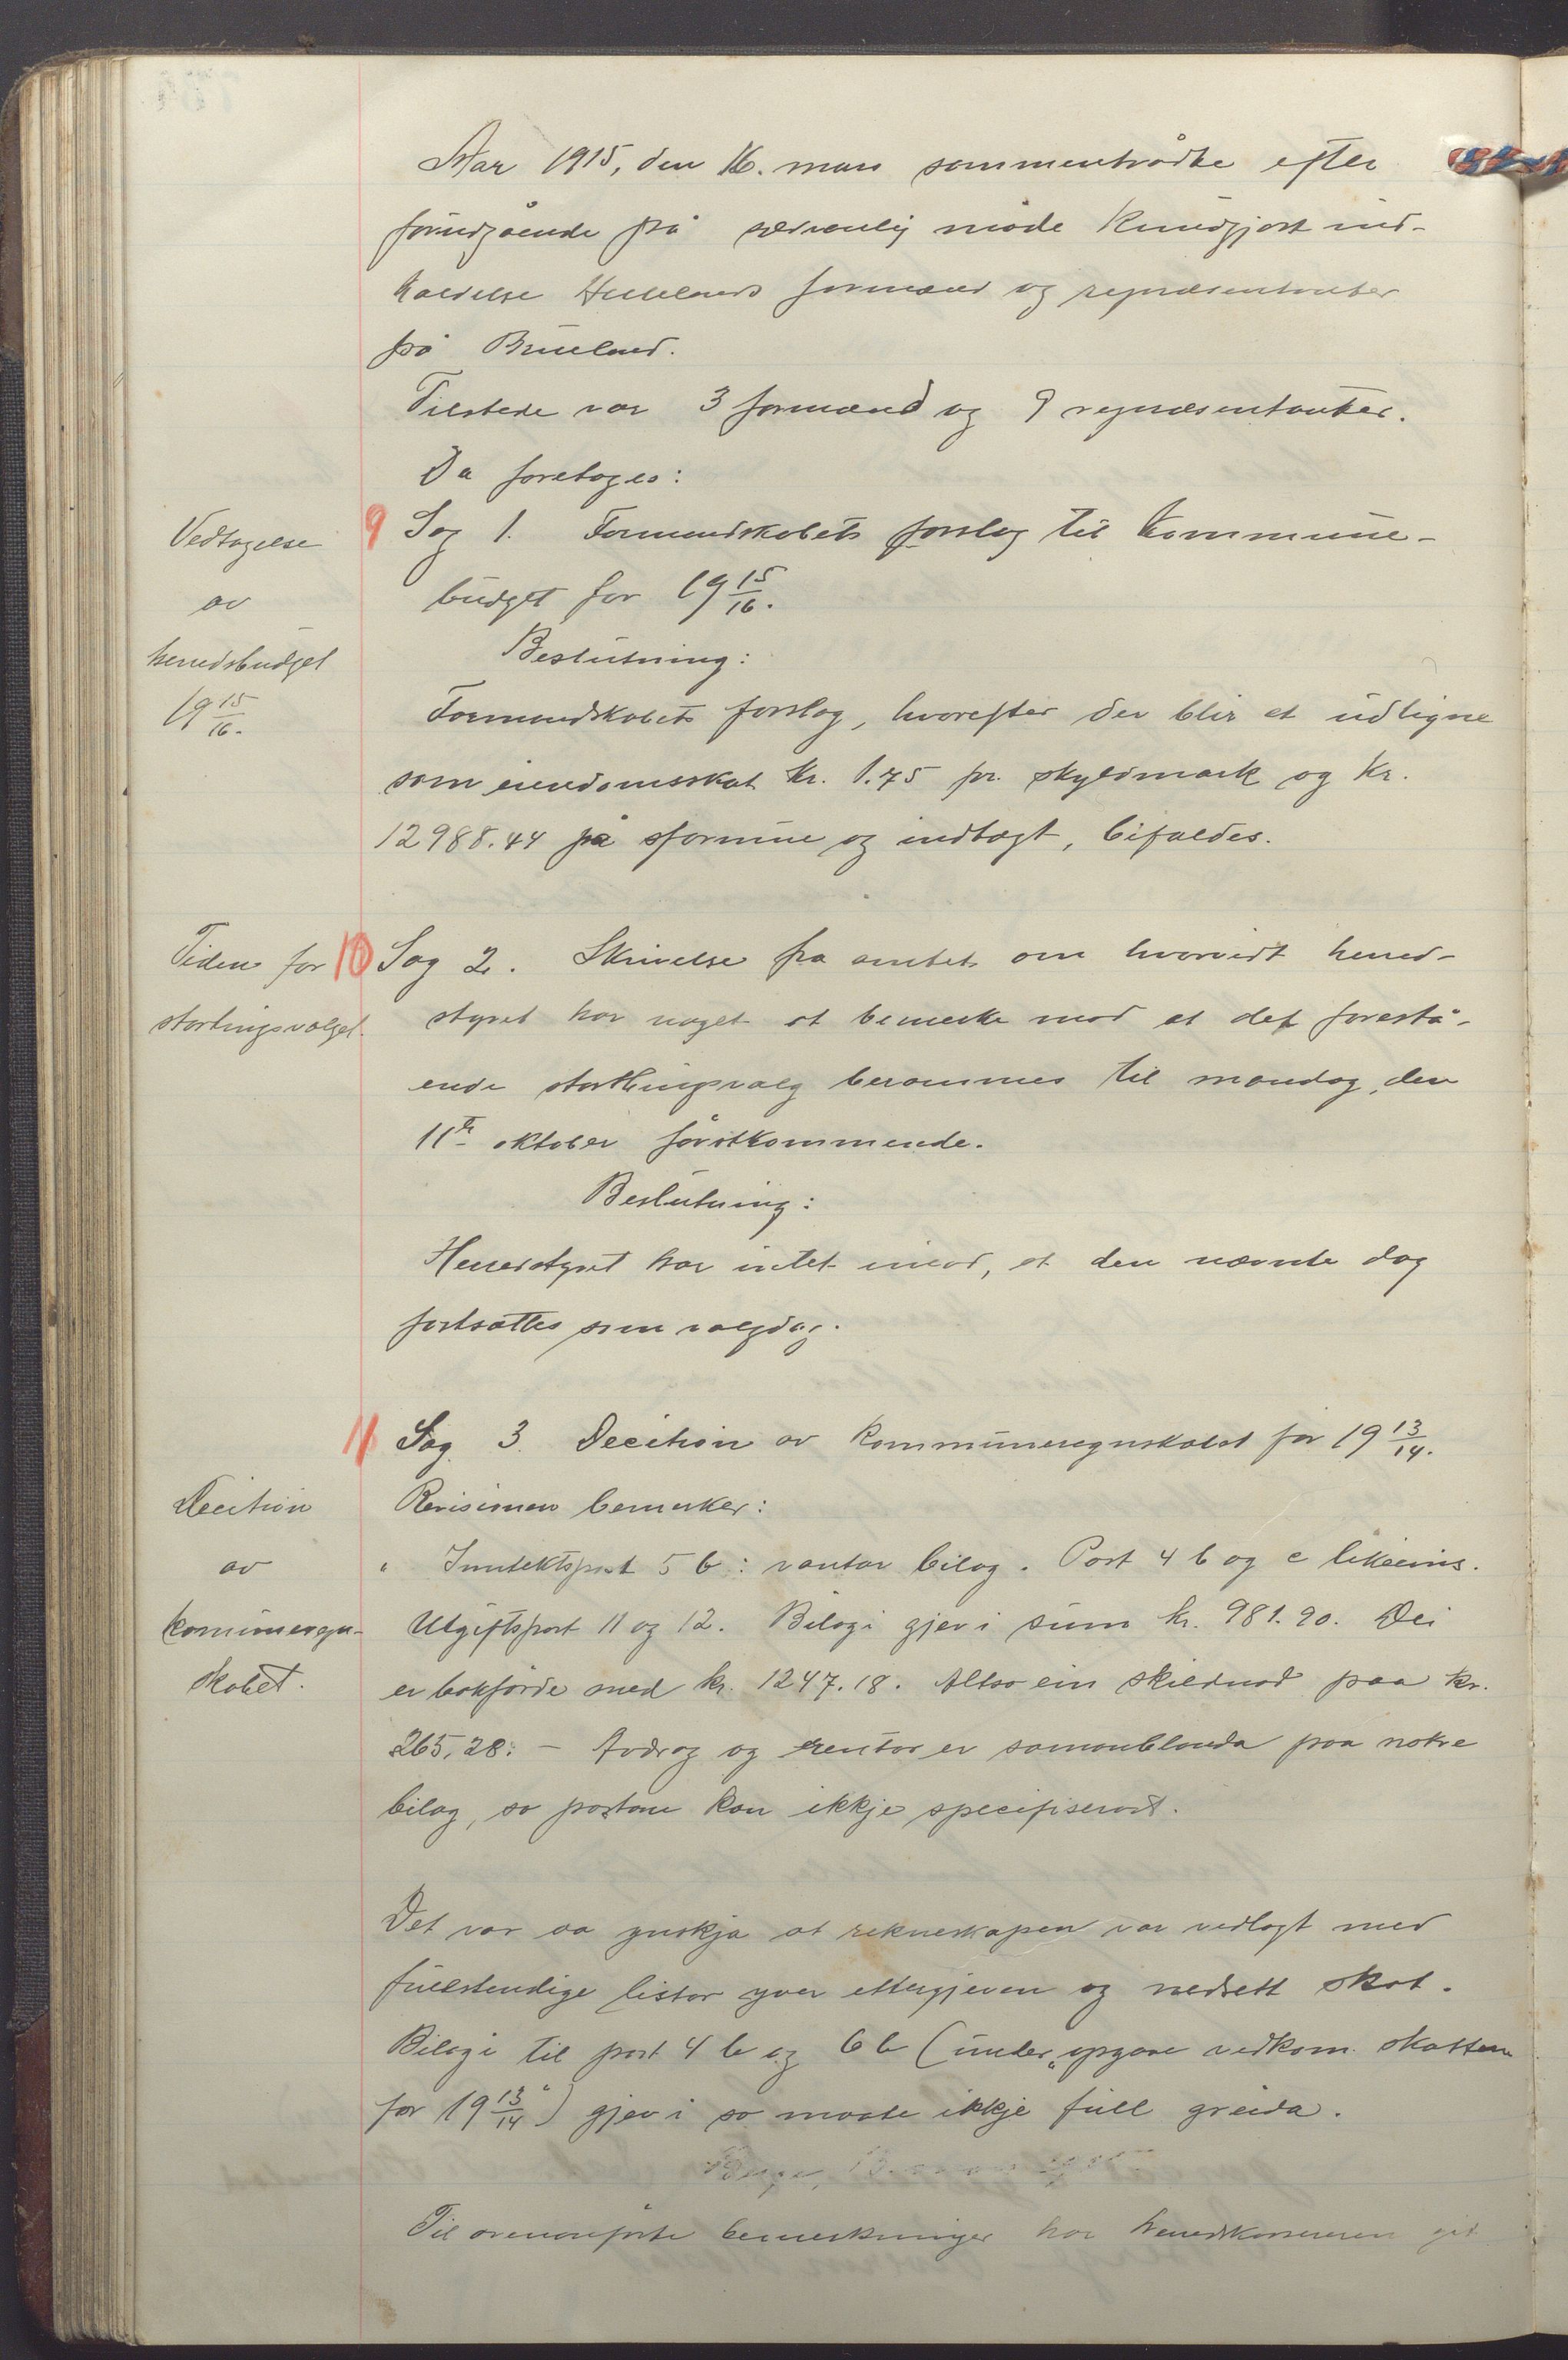 Aar 1915, den 16. mars sammentrådte efter
forudgående på sedvanlig måde kundgjort ind-
kaldelse Hellelands formænd og repræsentanter
på Brueland.
Tilstede var 3 formænd og 9 repræsentanter.
Da foretoges:
Vedtagelse
av
herredsbudget
19 15/16.
9 Sag 1. Formandskabets forslag til kommune-
budget for 19 15/16.
Beslutning:
Formandskabets forslag, hvorefter der blir at udligne
som eiendomsskat kr. 1.75 pr. skyldmark og kr.
12988.44 på formue og indtægt, bifaldes.
Tiden for
stortingsvalget.
10 Sag 2. Skrivelse fra amtet om hvorvidt herred-
styret har noget at bemerke mod at det forestå-
ende stortingsvalg berammes til mandag, den
11te oktober førstkommende.
Beslutning:
Herredstyret har intet imod, at den nævnte dag
fastsættes som valgdag.
11 Sag 3. Decition av kommuneregnskabet for 19 13/14.
Decition
av
kommuneregn-
skabet.
Revisionen bemerker:
" Inntektspost 5 b: vantar bilag. Post 4 b og c likeeins.
Utgiftspost 11 og 12. Bilagi gjev i sum kr. 981.90. Dei
er bokførde med kr. 1247.18. Altso ein skildnad paa kr.
265,28: - Avdrag og rentor er samanblanda paa nokre
bilag, so postane kan ikkje specifiserast.
Det var aa ynskja at rekneskapen var vedlagt med
fullstendige listor yver ettergjeven og nedsett skat.
Bilagi til post 4 b og 6 b (under "upgave vedkom. skatten
for 19 13/14") gjev i so maate ikkje full greida.
Til ovenanførte bemerkninger har herredskassereren git